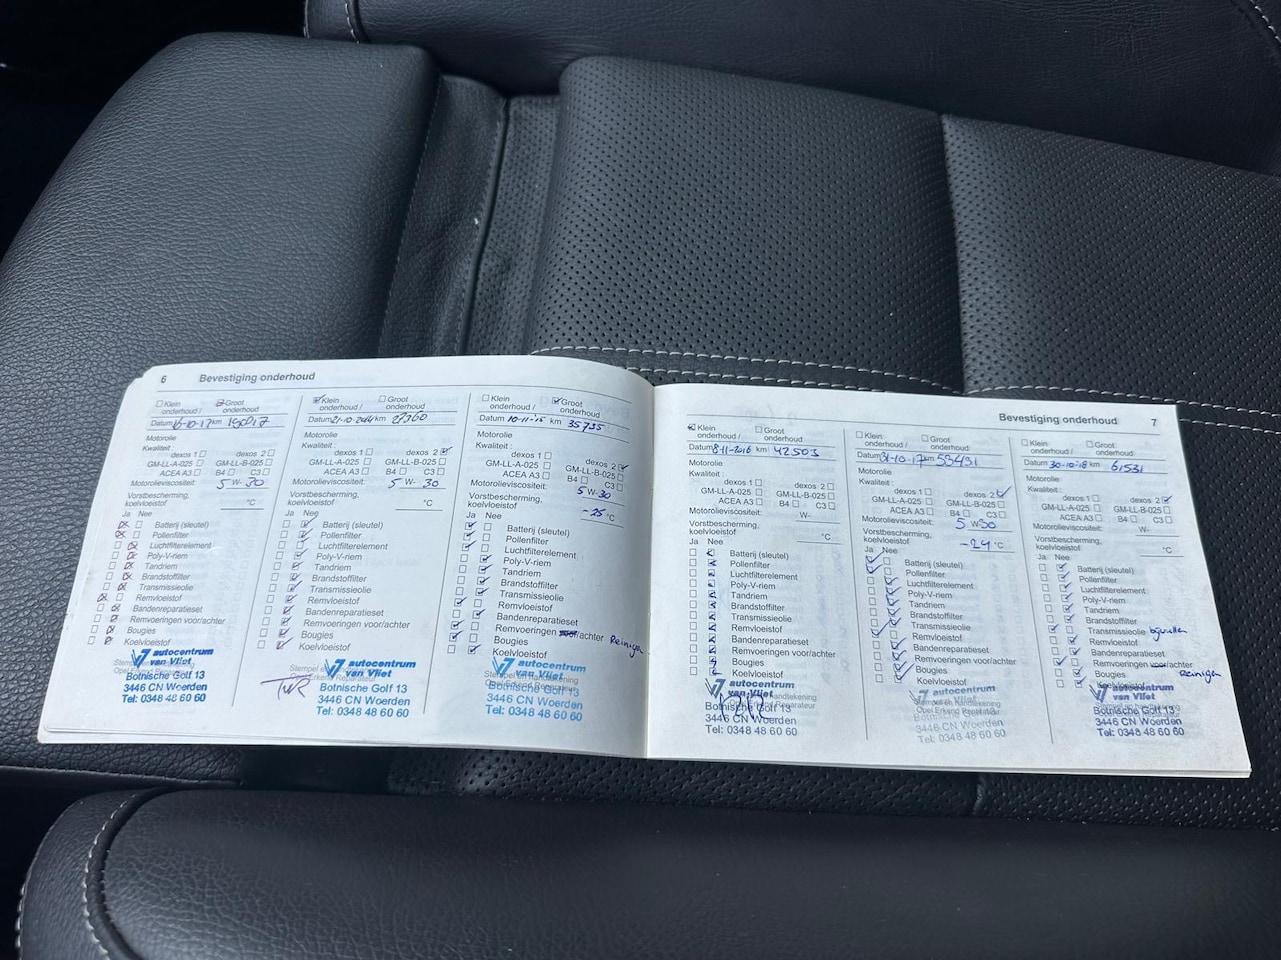 6 Bevestiging onderhoud
Klein onderhoud /
Groot onderhoud
Datum km
Motorolie
Kwaliteit :
dexos 1
dexos 2
GM-LL-A-025
GM-LL-B-025
ACEA A3
B4
C3
Motorolieviscositeit: 5 W- 30
Vorstbescherming, koelvloeistof °C
Ja Nee
Batterij (sleutel)
Pollenfilter
Luchtfilterelement
Poly-V-riem
Tandriem
Brandstoffilter
Transmissieolie
Remvloeistof
Bandenreparatieset
Remvoeringen voor/achter
Bougies
Koelvloeistof
autocentrum
van Vliet
Botnische Golf 13
3446 CN Woerden
Tel: 0348 48 60 60
Klein onderhoud /
Groot onderhoud
Datum 21-10-2014 km
Motorolie
Kwaliteit :
dexos 1
dexos 2
GM-LL-A-025
GM-LL-B-025
ACEA A3
B4
C3
Motorolieviscositeit: 5 W- 30
Vorstbescherming, koelvloeistof °C
Ja Nee
Batterij (sleutel)
Pollenfilter
Luchtfilterelement
Poly-V-riem
Tandriem
Brandstoffilter
Transmissieolie
Remvloeistof
Bandenreparatieset
Remvoeringen voor/achter
Bougies
Koelvloeistof
autocentrum
van Vliet
Botnische Golf 13
3446 CN Woerden
Tel: 0348 48 60 60
Klein onderhoud /
Groot onderhoud
Datum 10-11-15 km 35735
Motorolie
Kwaliteit :
dexos 1
dexos 2
GM-LL-A-025
GM-LL-B-025
ACEA A3
B4
C3
Motorolieviscositeit: 5 W-30
Vorstbescherming, koelvloeistof -25 °C
Ja Nee
Batterij (sleutel)
Pollenfilter
Luchtfilterelement
Poly-V-riem
Tandriem
Brandstoffilter
Transmissieolie
Remvloeistof
Bandenreparatieset
Remvoeringen voor/achter Reinigen
Bougies
Koelvloeistof
autocentrum
van Vliet
Botnische Golf 13
3446 CN Woerden
Tel: 0348 48 60 60
Bevestiging onderhoud 7
Klein onderhoud /
Groot onderhoud
Datum 8-11-2016 km 42503
Motorolie
Kwaliteit :
dexos 1
dexos 2
GM-LL-A-025
GM-LL-B-025
ACEA A3
B4
C3
Motorolieviscositeit: W-
Vorstbescherming, koelvloeistof °C
Ja Nee
Batterij (sleutel)
Pollenfilter
Luchtfilterelement
Poly-V-riem
Tandriem
Brandstoffilter
Transmissieolie
Remvloeistof
Bandenreparatieset
Remvoeringen voor/achter
Bougies
Koelvloeistof
autocentrum
van Vliet
Botnische Golf 13
3446 CN Woerden
Tel: 0348 48 60 60
Klein onderhoud /
Groot onderhoud
Datum 31-10-17 km 53431
Motorolie
Kwaliteit :
dexos 1
dexos 2
GM-LL-A-025
GM-LL-B-025
ACEA A3
B4
C3
Motorolieviscositeit: 5 W30
Vorstbescherming, koelvloeistof -24 °C
Ja Nee
Batterij (sleutel)
Pollenfilter
Luchtfilterelement
Poly-V-riem
Tandriem
Brandstoffilter
Transmissieolie
Remvloeistof
Bandenreparatieset
Remvoeringen voor/achter
Bougies
Koelvloeistof
autocentrum
van Vliet
Botnische Golf 13
3446 CN Woerden
Tel: 0348 48 60 60
Klein onderhoud /
Groot onderhoud
Datum 30-10-18 km 61531
Motorolie
Kwaliteit :
dexos 1
dexos 2
GM-LL-A-025
GM-LL-B-025
ACEA A3
B4
C3
Motorolieviscositeit: W-
Vorstbescherming, koelvloeistof °C
Ja Nee
Batterij (sleutel)
Pollenfilter
Luchtfilterelement
Poly-V-riem
Tandriem
Brandstoffilter
Transmissieolie
Remvloeistof
Bandenreparatieset
Remvoeringen voor/achter Reinigen
Bougies
Koelvloeistof
autocentrum
van Vliet
Botnische Golf 13
3446 CN Woerden
Tel: 0348 48 60 60